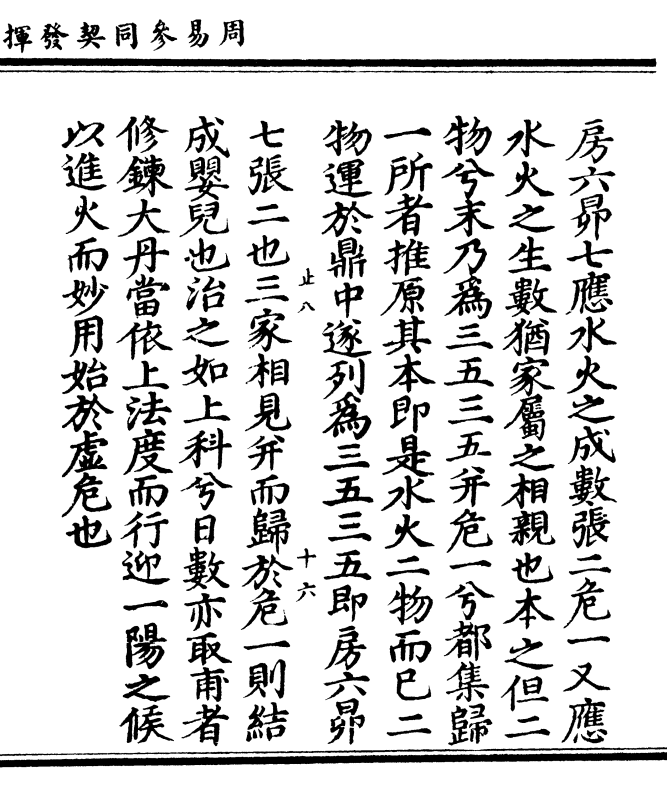 周易參同契發揮
房六昴七應水火之成數張二危一又應
水火之生數猶家屬之相親也本之但二
物兮末乃爲三五三五并危一兮都集歸
一所者推原其本即是水火二物而已二
物運於鼎中遂列爲三五三五即房六昴
止八　十六
七張二也三家相見并而歸於危一則結
成嬰兒也治之如上科兮日數亦取甫者
修鍊大丹當依上法度而行迎一陽之候
以進火而妙用始於虛危也